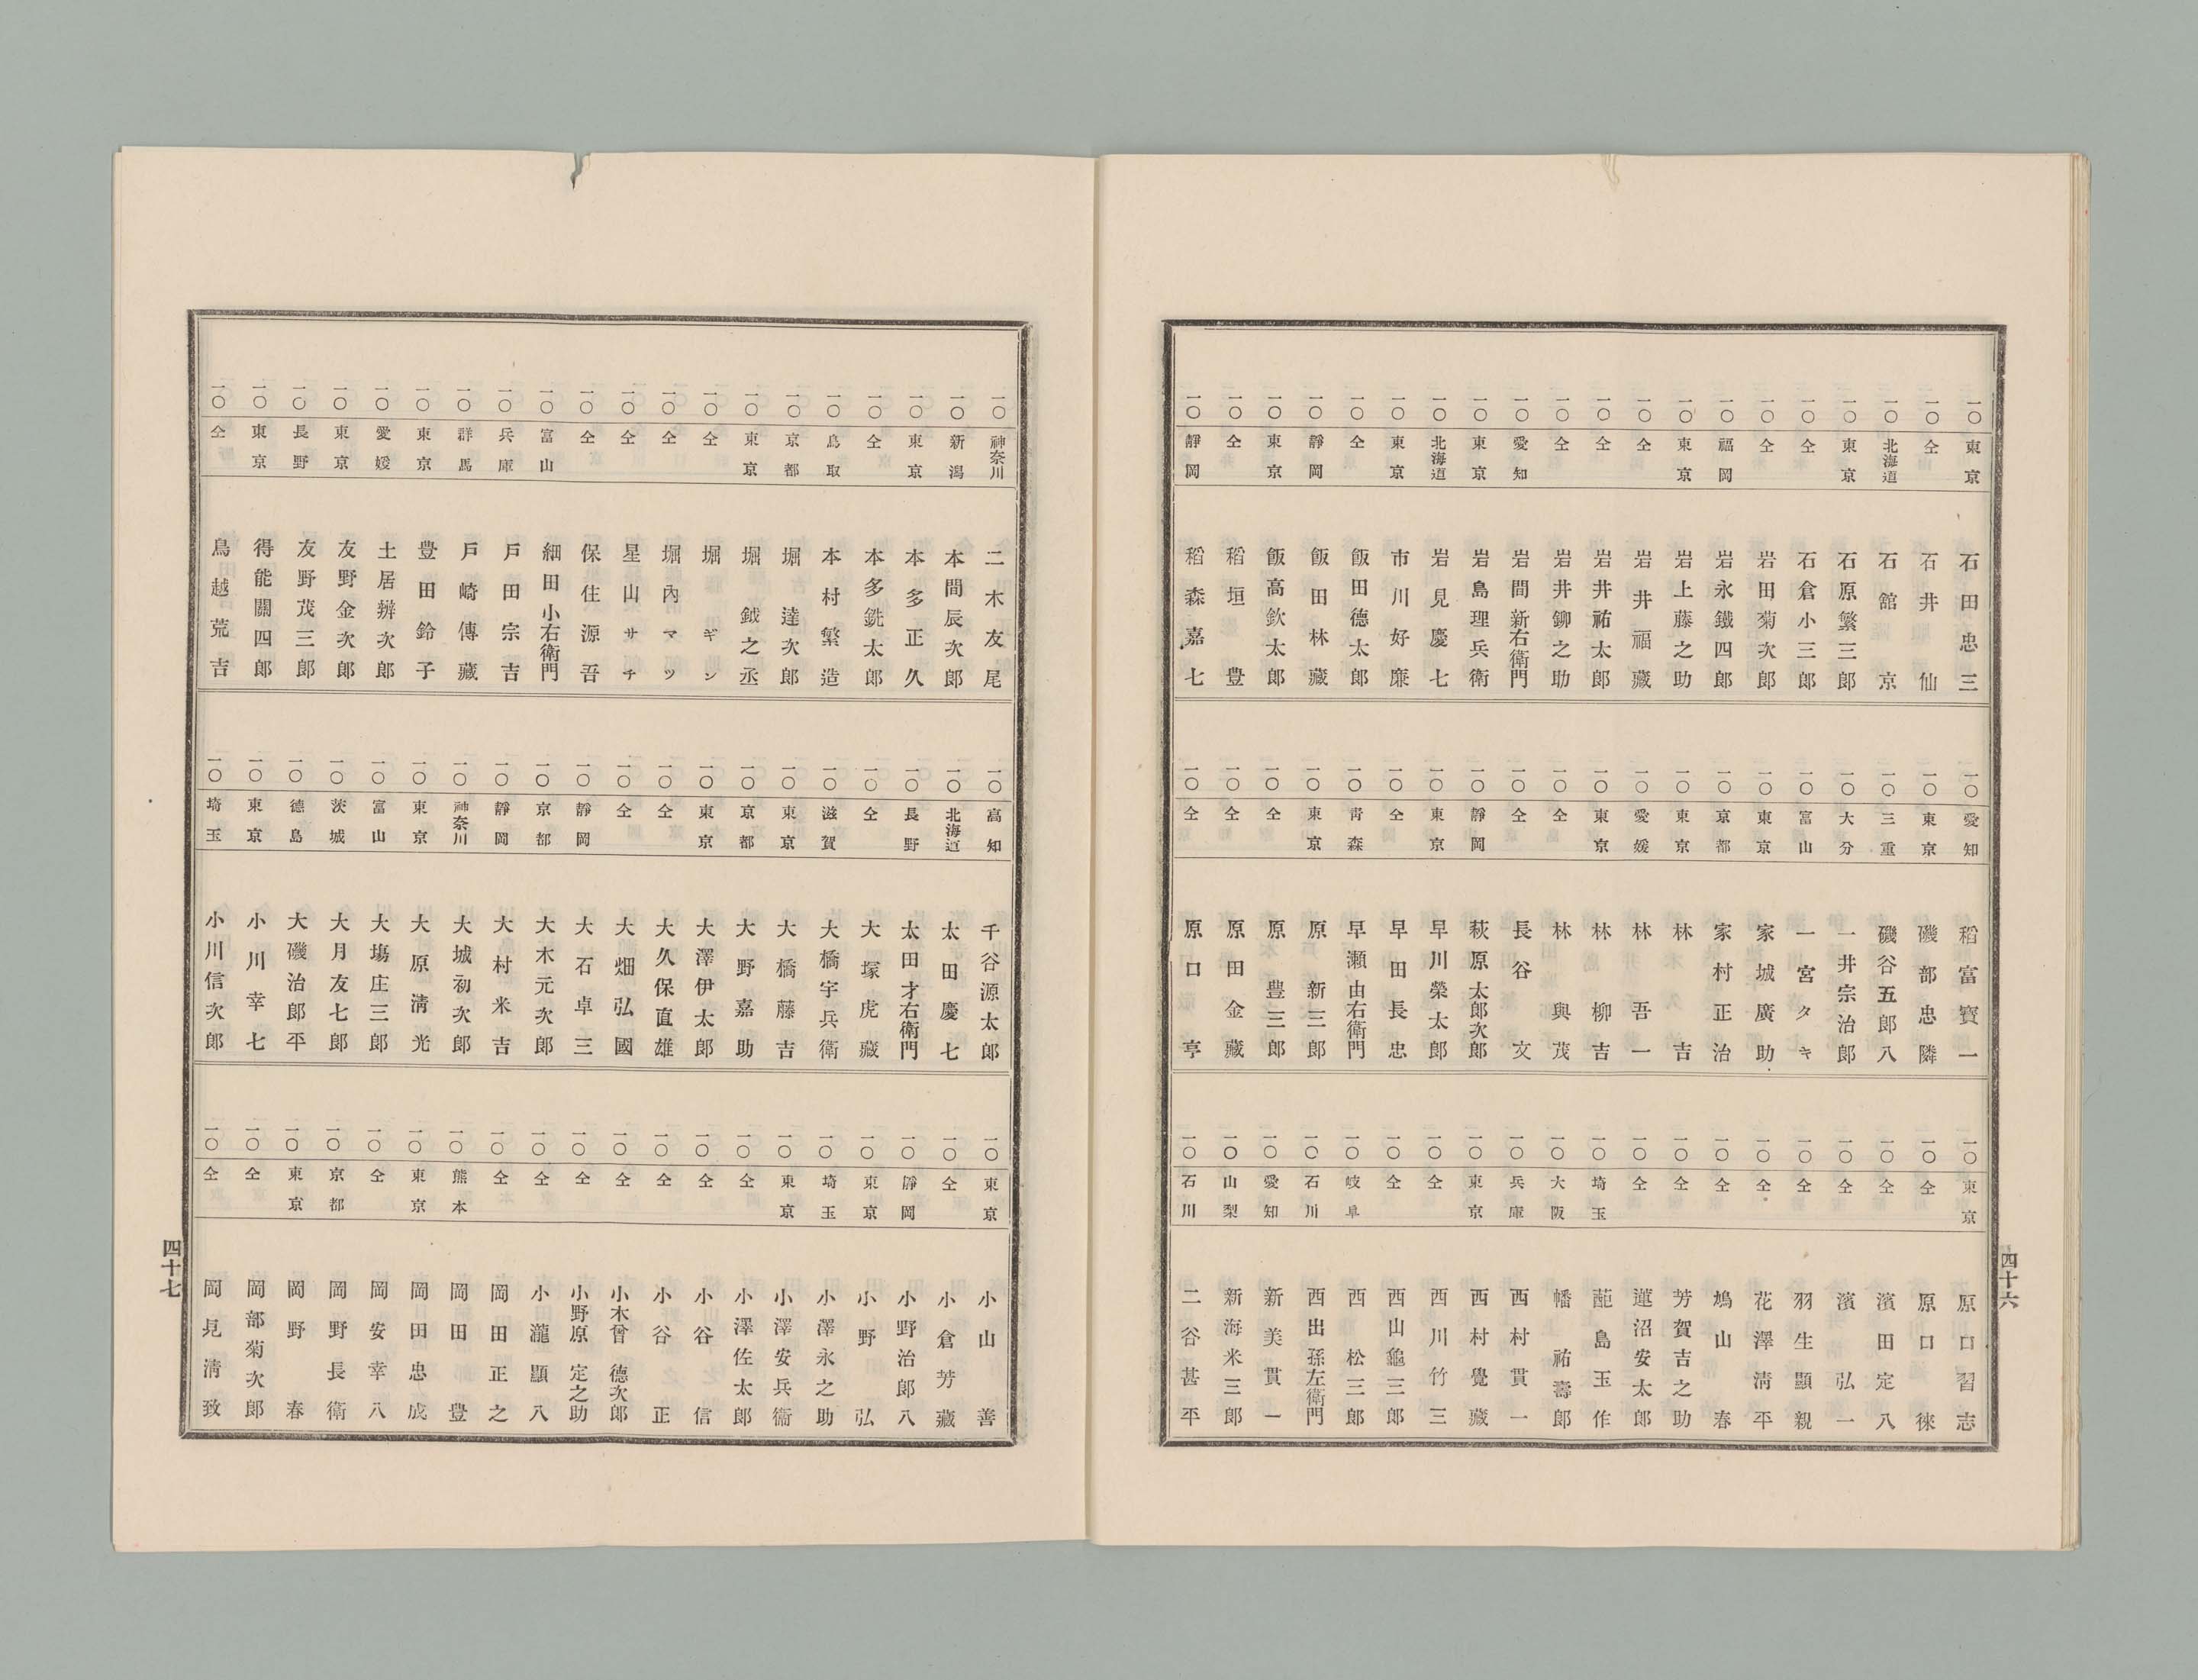 一〇 東京 石田忠三
一〇 仝 石井仙
一〇 北海道 石舘京
一〇 東京 石原繁三郎
一〇 仝 石倉小三郎
一〇 仝 岩田菊次郎
一〇 福岡 岩永鐵四郎
一〇 東京 岩上藤之助
一〇 仝 岩井福藏
一〇 仝 岩井祐太郎
一〇 仝 岩井鉚之助
一〇 愛知 岩間新右衛門
一〇 東京 岩島理兵衛
一〇 北海道 岩見慶七
一〇 東京 市川好廉
一〇 仝 飯田德太郎
一〇 靜岡 飯田林藏
一〇 東京 飯高欽太郎
一〇 仝 稻垣豊
一〇 靜岡 稻森嘉七
一〇 愛知 稻富寶一
一〇 東京 磯部忠隣
一〇 三重 磯谷五郎八
一〇 大分 一井宗治郎
一〇 富山 一宮タキ
一〇 東京 家城廣助
一〇 京都 家村正治
一〇 東京 林吉
一〇 愛媛 林吾一
一〇 東京 林柳吉
一〇 仝 林與茂
一〇 仝 長谷文
一〇 靜岡 萩原太郎次郎
一〇 東京 早川榮太郎
一〇 仝 早田長忠
一〇 靑森 早瀬由右衛門
一〇 東京 原新三郎
一〇 仝 原豊三郎
一〇 仝 原田金藏
一〇 仝 原口亨
一〇 東京 原口習志
一〇 仝 原口徠
一〇 仝 濱田定八
一〇 仝 濱弘一
一〇 仝 羽生顯親
一〇 仝 花澤淸平
一〇 仝 鳩山春
一〇 仝 芳賀吉之助
一〇 仝 蓮沼安太郎
一〇 埼玉 蓜島玉作
一〇 大阪 幡祐壽郎
一〇 兵庫 西村貫一
一〇 東京 西村覺藏
一〇 仝 西川竹三
一〇 仝 西山龜三郎
一〇 岐阜 西松三郎
一〇 石川 西出孫左衛門
一〇 愛知 新美貫一
一〇 山梨 新海米三郎
一〇 石川 二谷甚平
四十六
一〇 神奈川 二木友尾
一〇 新潟 本間辰次郎
一〇 東京 本多正久
一〇 仝 本多銑太郎
一〇 鳥取 本村繁造
一〇 京都 堀達次郎
一〇 東京 堀鉞之丞
一〇 仝 堀ギン
一〇 仝 堀內マツ
一〇 仝 星山サチ
一〇 仝 保住源吾
一〇 富山 細田小右衛門
一〇 兵庫 戸田宗吉
一〇 群馬 戸崎傳藏
一〇 東京 豊田鈴子
一〇 愛媛 土居辨次郎
一〇 東京 友野金次郎
一〇 長野 友野茂三郎
一〇 東京 得能關四郎
一〇 仝 鳥越荒吉
一〇 高知 千谷源太郎
一〇 北海道 太田慶七
一〇 長野 太田才右衛門
一〇 仝 大塚虎藏
一〇 滋賀 大橋宇兵衛
一〇 東京 大橋藤吉
一〇 京都 大野嘉助
一〇 東京 大澤伊太郎
一〇 仝 大久保直雄
一〇 仝 大畑弘國
一〇 靜岡 大石卓三
一〇 京都 大木元次郎
一〇 靜岡 大村米吉
一〇 神奈川 大城初次郎
一〇 東京 大原淸光
一〇 富山 大塲庄三郎
一〇 茨城 大月友七郎
一〇 德島 大磯治郎平
一〇 東京 小川幸七
一〇 埼玉 小川信次郎
一〇 東京 小山善
一〇 仝 小倉芳藏
一〇 靜岡 小野治郎八
一〇 東京 小野弘
一〇 埼玉 小澤永之助
一〇 東京 小澤安兵衞
一〇 仝 小澤佐太郎
一〇 仝 小谷信
一〇 仝 小谷正
一〇 仝 小木曾德次郎
一〇 仝 小野原定之助
一〇 仝 小瀧顯八
一〇 仝 岡田正之
一〇 熊本 岡田豊
一〇 東京 岡田忠成
一〇 仝 岡安幸八
一〇 京都 岡野長衛
一〇 東京 岡野春
一〇 仝 岡部菊次郎
一〇 仝 岡見淸致
四十七